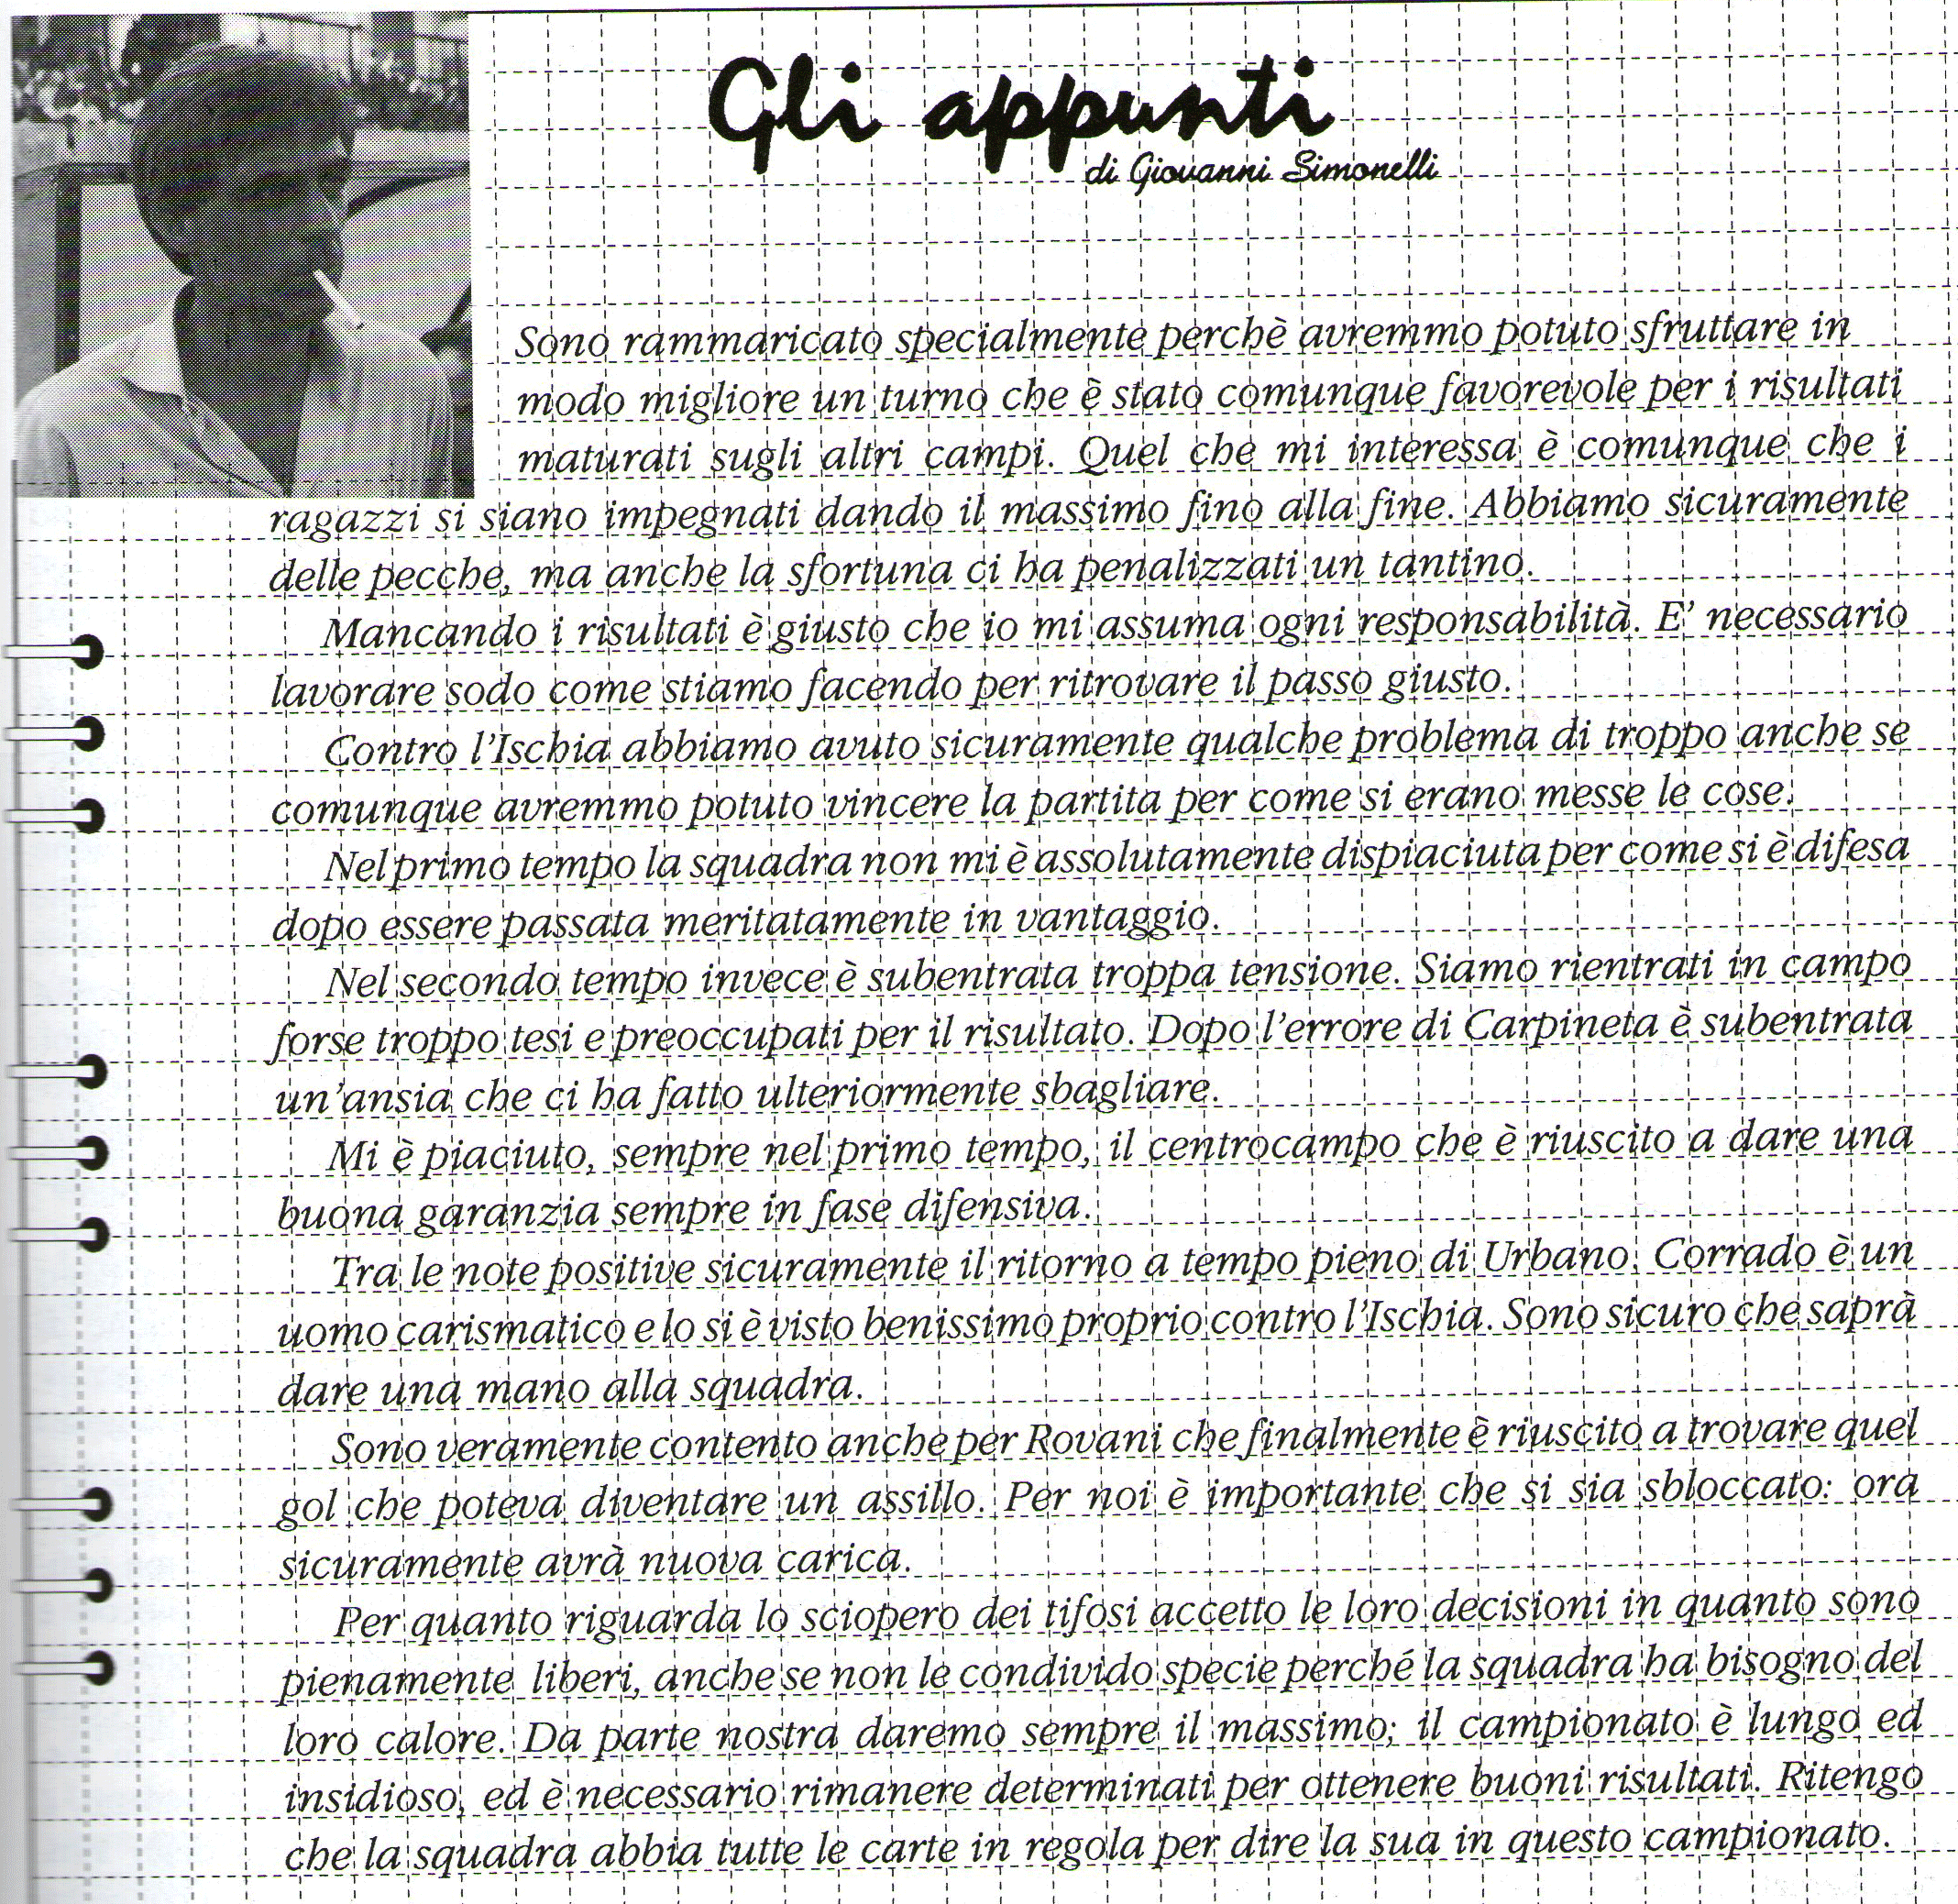 Gli appunti
di Giovanni Simonelli
Sono rammaricato specialmente perchè avremmo potuto sfruttare in
modo migliore un turno che è stato comunque favorevole per i risultati
maturati sugli altri campi. Quel che mi interessa è comunque che i
ragazzi si siano impegnati dando il massimo fino alla fine. Abbiamo sicuramente
delle pecche, ma anche la sfortuna ci ha penalizzati un tantino.
Mancando i risultati è giusto che io mi assuma ogni responsabilità. E' necessario
lavorare sodo come stiamo facendo per ritrovare il passo giusto.
Contro l'Ischia abbiamo avuto sicuramente qualche problema di troppo anche se
comunque avremmo potuto vincere la partita per come si erano messe le cose.
Nel primo tempo la squadra non mi è assolutamente dispiaciuta per come si è difesa
dopo essere passata meritatamente in vantaggio.
Nel secondo tempo invece è subentrata troppa tensione. Siamo rientrati in campo
forse troppo tesi e preoccupati per il risultato. Dopo l'errore di Carpineta è subentrata
un'ansia che ci ha fatto ulteriormente sbagliare.
Mi è piaciuto, sempre nel primo tempo, il centrocampo che è riuscito a dare una
buona garanzia sempre in fase difensiva.
Tra le note positive sicuramente il ritorno a tempo pieno di Urbano. Corrado è un
uomo carismatico e lo si è visto benissimo proprio contro l'Ischia. Sono sicuro che saprà
dare una mano alla squadra.
Sono veramente contento anche per Rovani che finalmente è riuscito a trovare quel
gol che poteva diventare un assillo. Per noi è importante che si sia sbloccato: ora
sicuramente avrà nuova carica.
Per quanto riguarda lo sciopero dei tifosi accetto le loro decisioni in quanto sono
pienamente liberi, anche se non le condivido specie perché la squadra ha bisogno del
loro calore. Da parte nostra daremo sempre il massimo; il campionato è lungo ed
insidioso, ed è necessario rimanere determinati per ottenere buoni risultati. Ritengo
che la squadra abbia tutte le carte in regola per dire la sua in questo campionato.